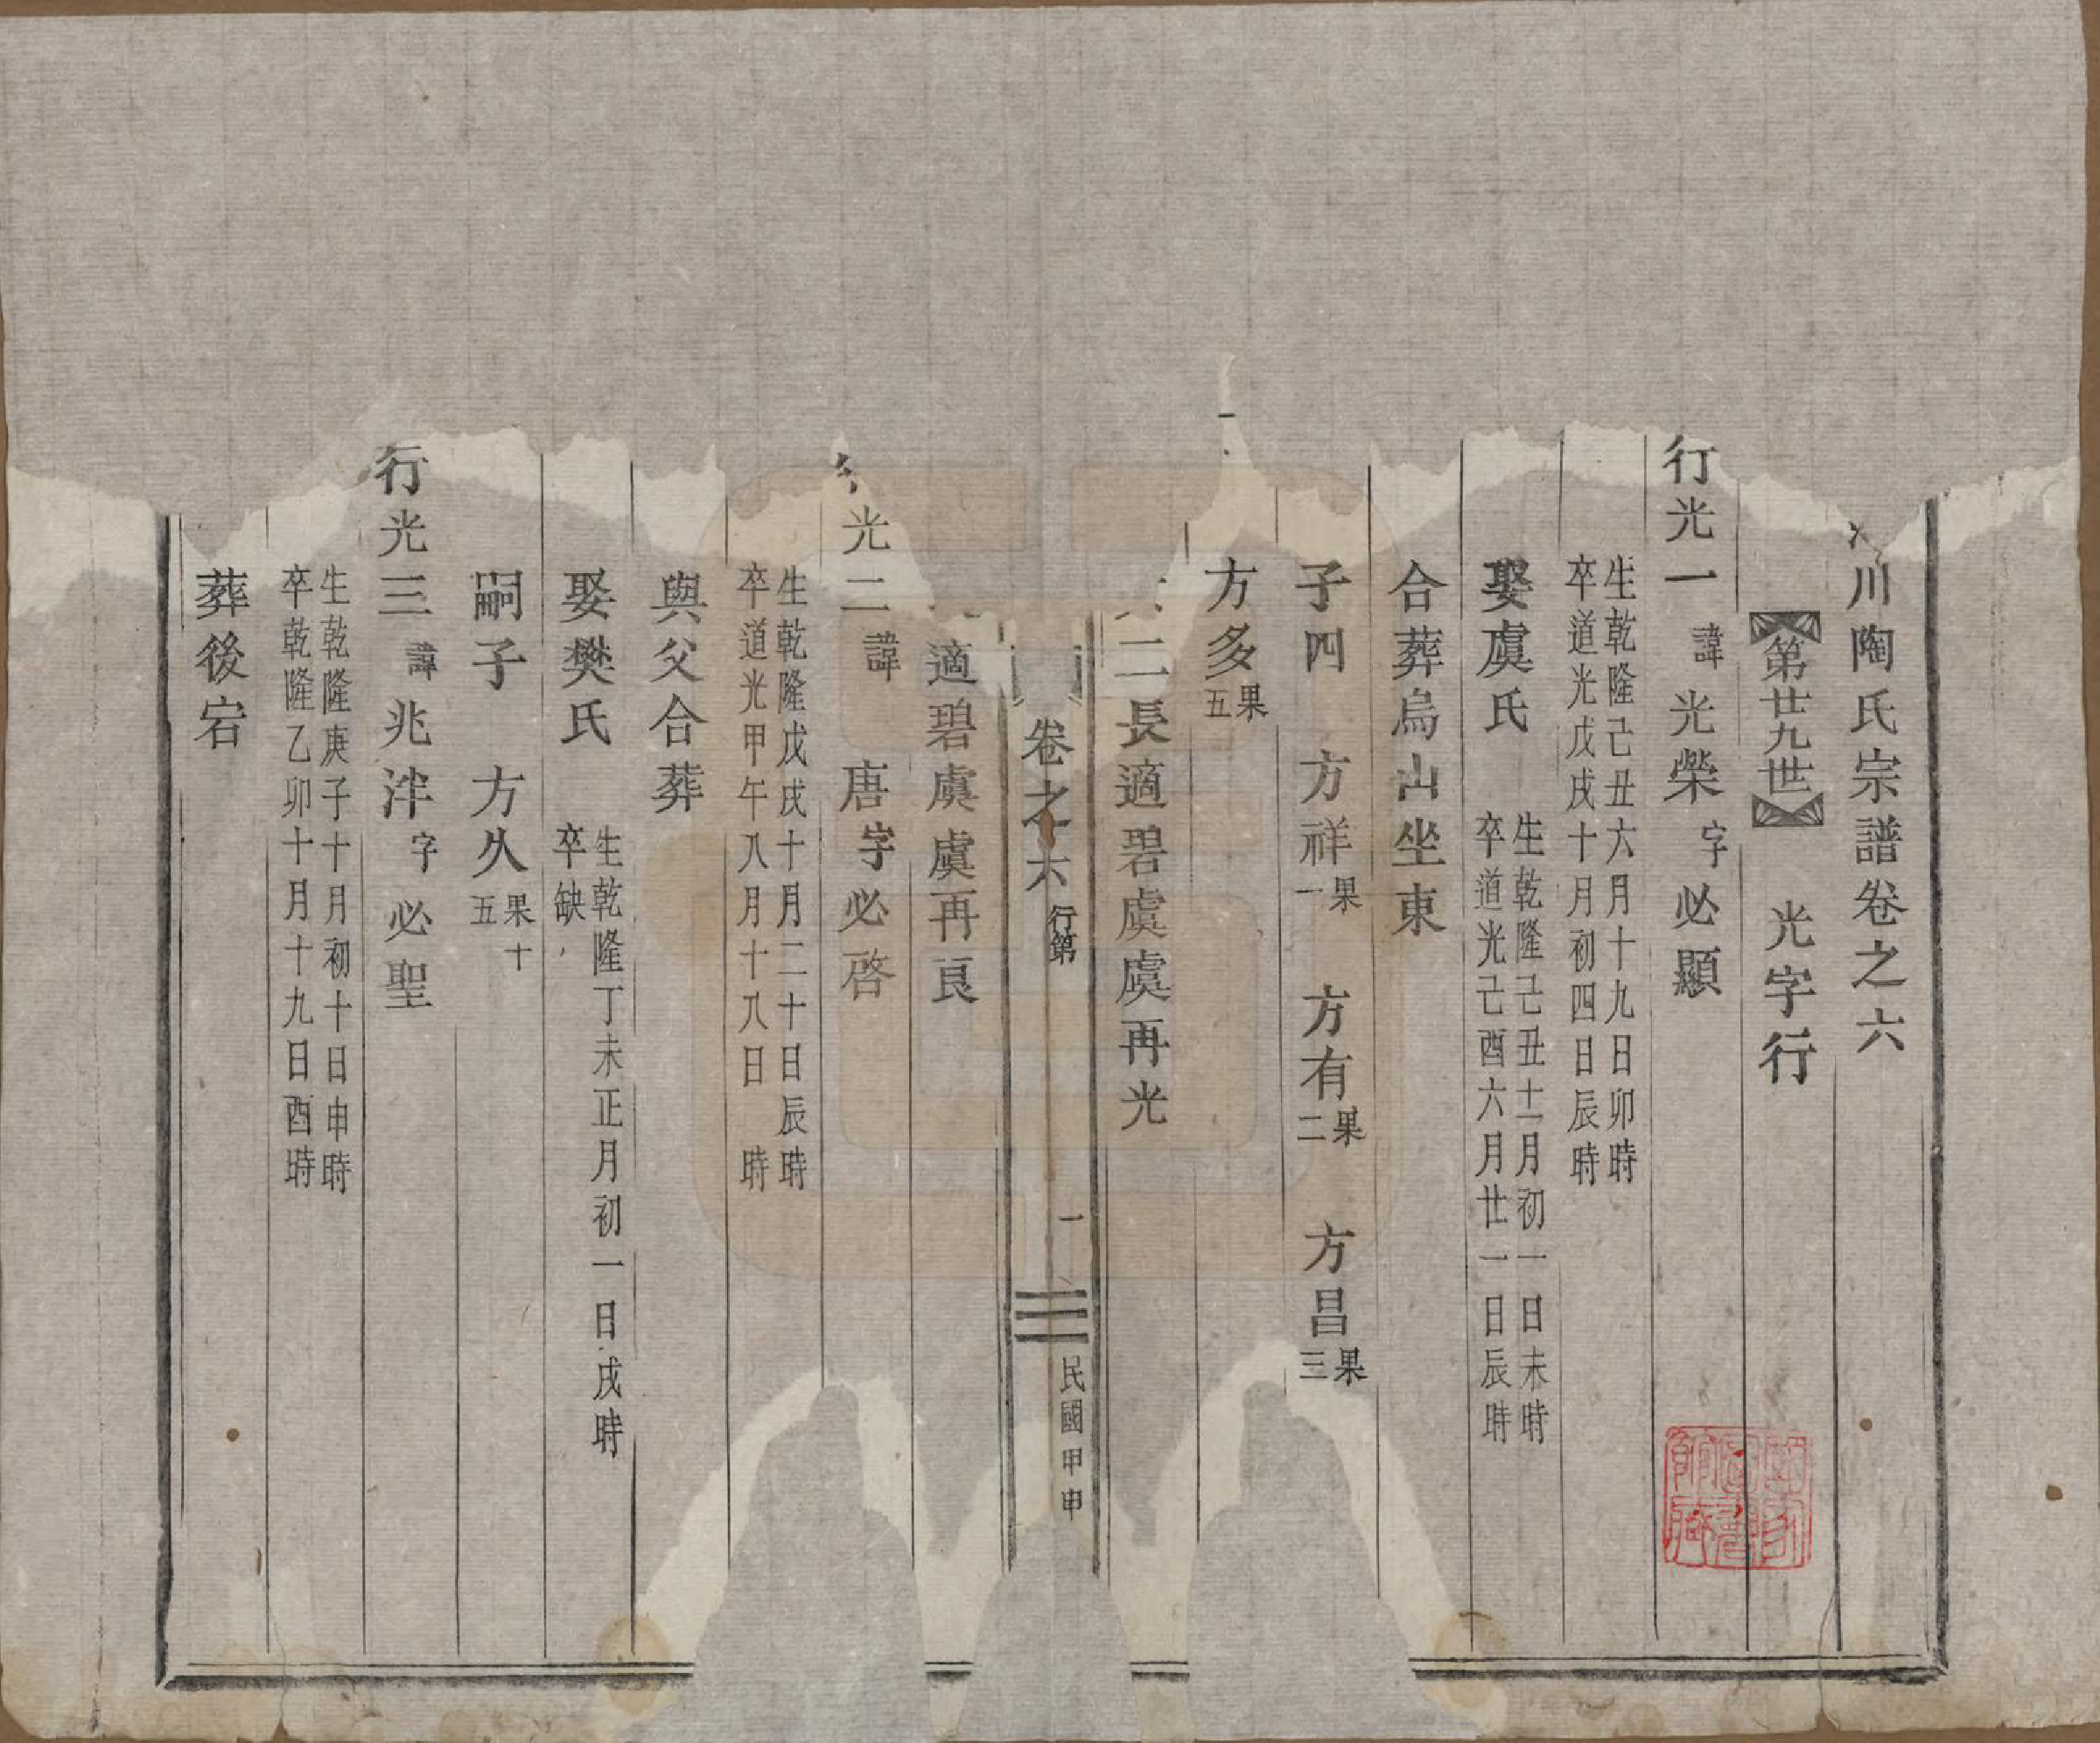 川陶氏宗譜卷之六
第廿九世 光字行
行光一 諱光榮 字必顯
生乾隆己丑六月十九日卯時
卒道光戊戌十月初四日辰時
娶虞氏
生乾隆己丑十二月初一日未時
卒道光己酉六月廿一日辰時
合葬烏山坐東
子四 方祥 果一 方有 果二 方昌 果三
方多 果五
二長適碧虞虞再光
卷之六 行第 一 民國甲申
適碧虞虞再良
光二 諱 唐 字必啓
生乾隆戊戌十月二十日辰時
卒道光甲午八月十八日 時
與父合葬
娶樊氏
生乾隆丁未正月初一日戌時
卒缺
嗣子 方久 果十五
行光三 諱兆泮 字必聖
生乾隆庚子十月初十日申時
卒乾隆乙卯十月十九日酉時
葬後宕